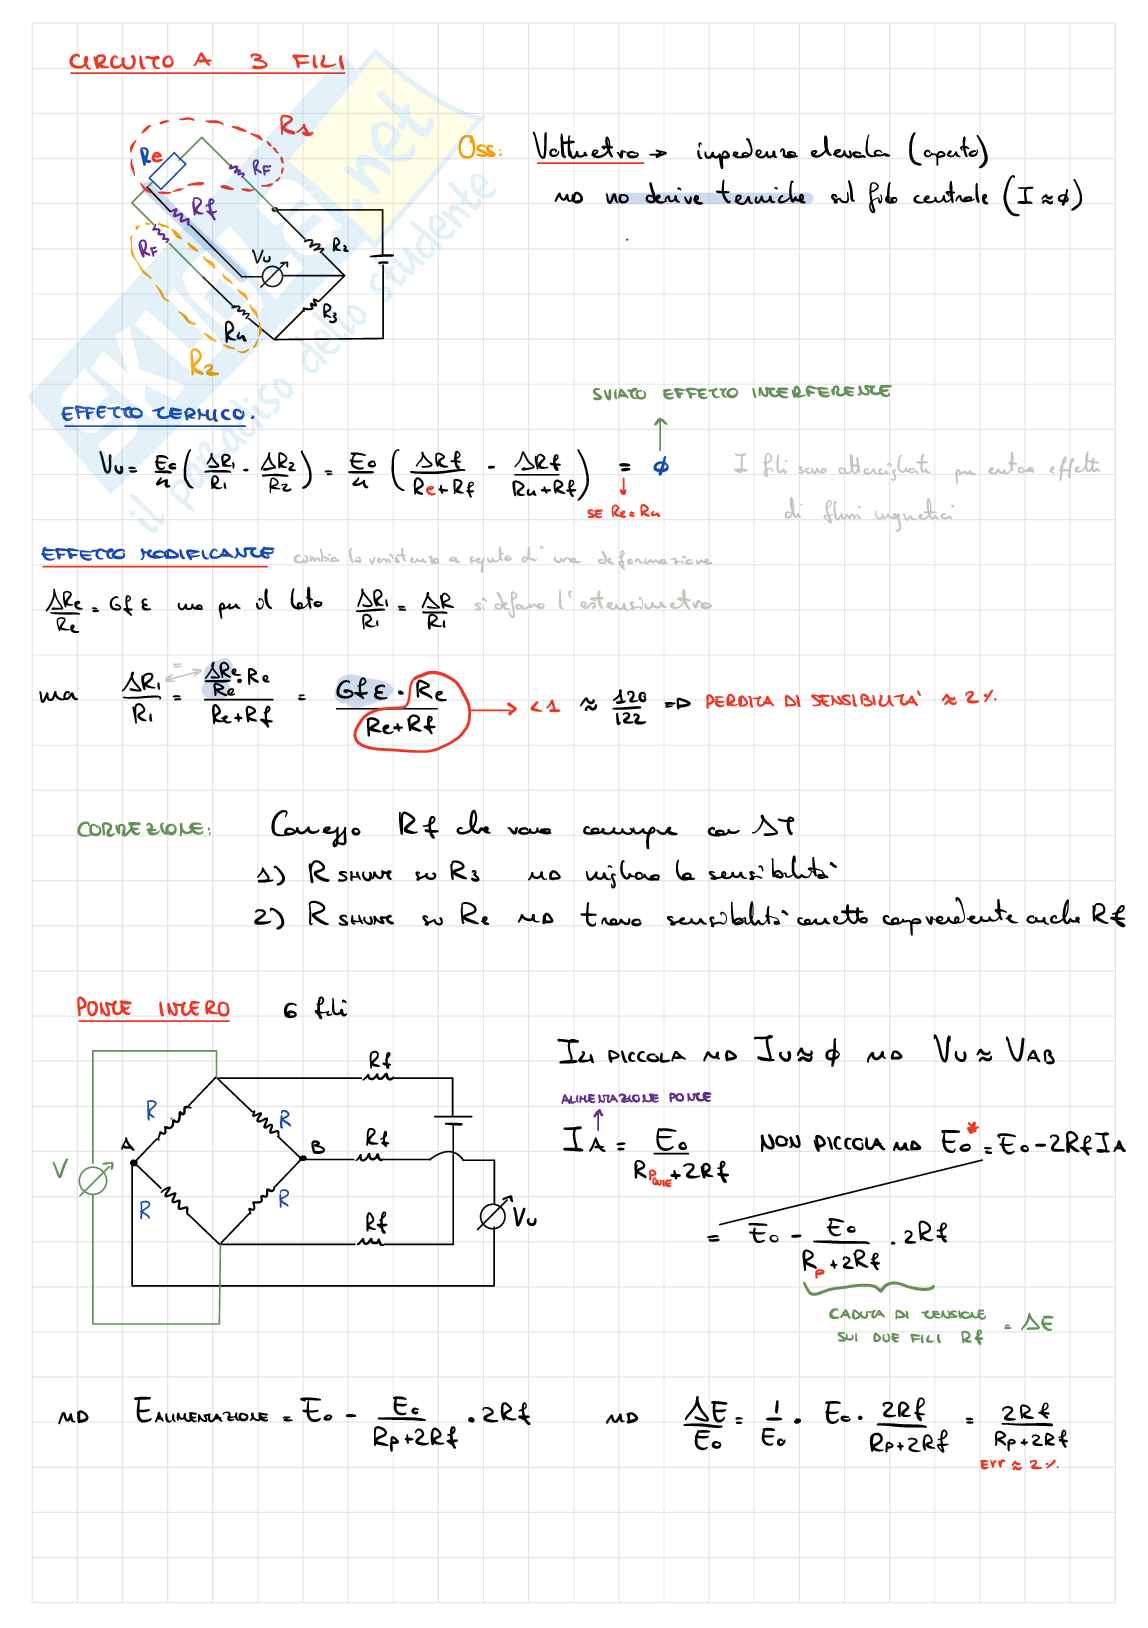 CIRCUITO A 3 FILI
R1
Re
RF
Oss: Voltmetro → impedenza elevata (aperto)
no derive termiche sul filo centrale (I ≈ ϕ)
Rf
RF
Vu
R2
R3
R4
R2
SKUOLA.net
il paradiso dello studente
SVIATO EFFETTO INTERFERENTE
EFFETTO TERMICO.
Vu = E0/4 (ΔR1/R1 - ΔR2/R2) = E0/4 (ΔRf/Re+Rf - ΔRf/R4+Rf) = ϕ
SE Re=R4
I fili sono attorcigliati per evitare effetti
di flussi magnetici
EFFETTO MODIFICANTE cambia la resistenza a seguito di una deformazione
ΔRe/Re = Gf ε ma per il lato ΔR1/R1 = ΔR/R1 si deforma l'estensimetro
ma ΔR1/R1 = ΔRe/Re · Re / Re+Rf = Gf ε · Re / Re+Rf → <1 ≈ 120/122 => PERDITA DI SENSIBILITA' ≈ 2%
CORREZIONE: Correggo Rf che varia comunque con ΔT
1) R SHUNT su R3 => miglioro la sensibilità
2) R SHUNT su Re => trovo sensibilità corretta comprendente anche Rf
PONTE INTERO 6 fili
Rf
R R
A B
Rf
V
R R
Rf
Vu
Iu PICCOLA => Iu ≈ ϕ => Vu ≈ VAB
ALIMENTAZIONE PONTE
IA = E0 / RPONTE+2Rf NON PICCOLA => E0* = E0 - 2Rf IA
= E0 - E0/Rp+2Rf · 2Rf
CADUTA DI TENSIONE
SUI DUE FILI Rf = ΔE
=> EALIMENTAZIONE = E0 - E0/Rp+2Rf · 2Rf => ΔE/E0 = 1/E0 · E0 · 2Rf/Rp+2Rf = 2Rf/Rp+2Rf
Err ≈ 2%